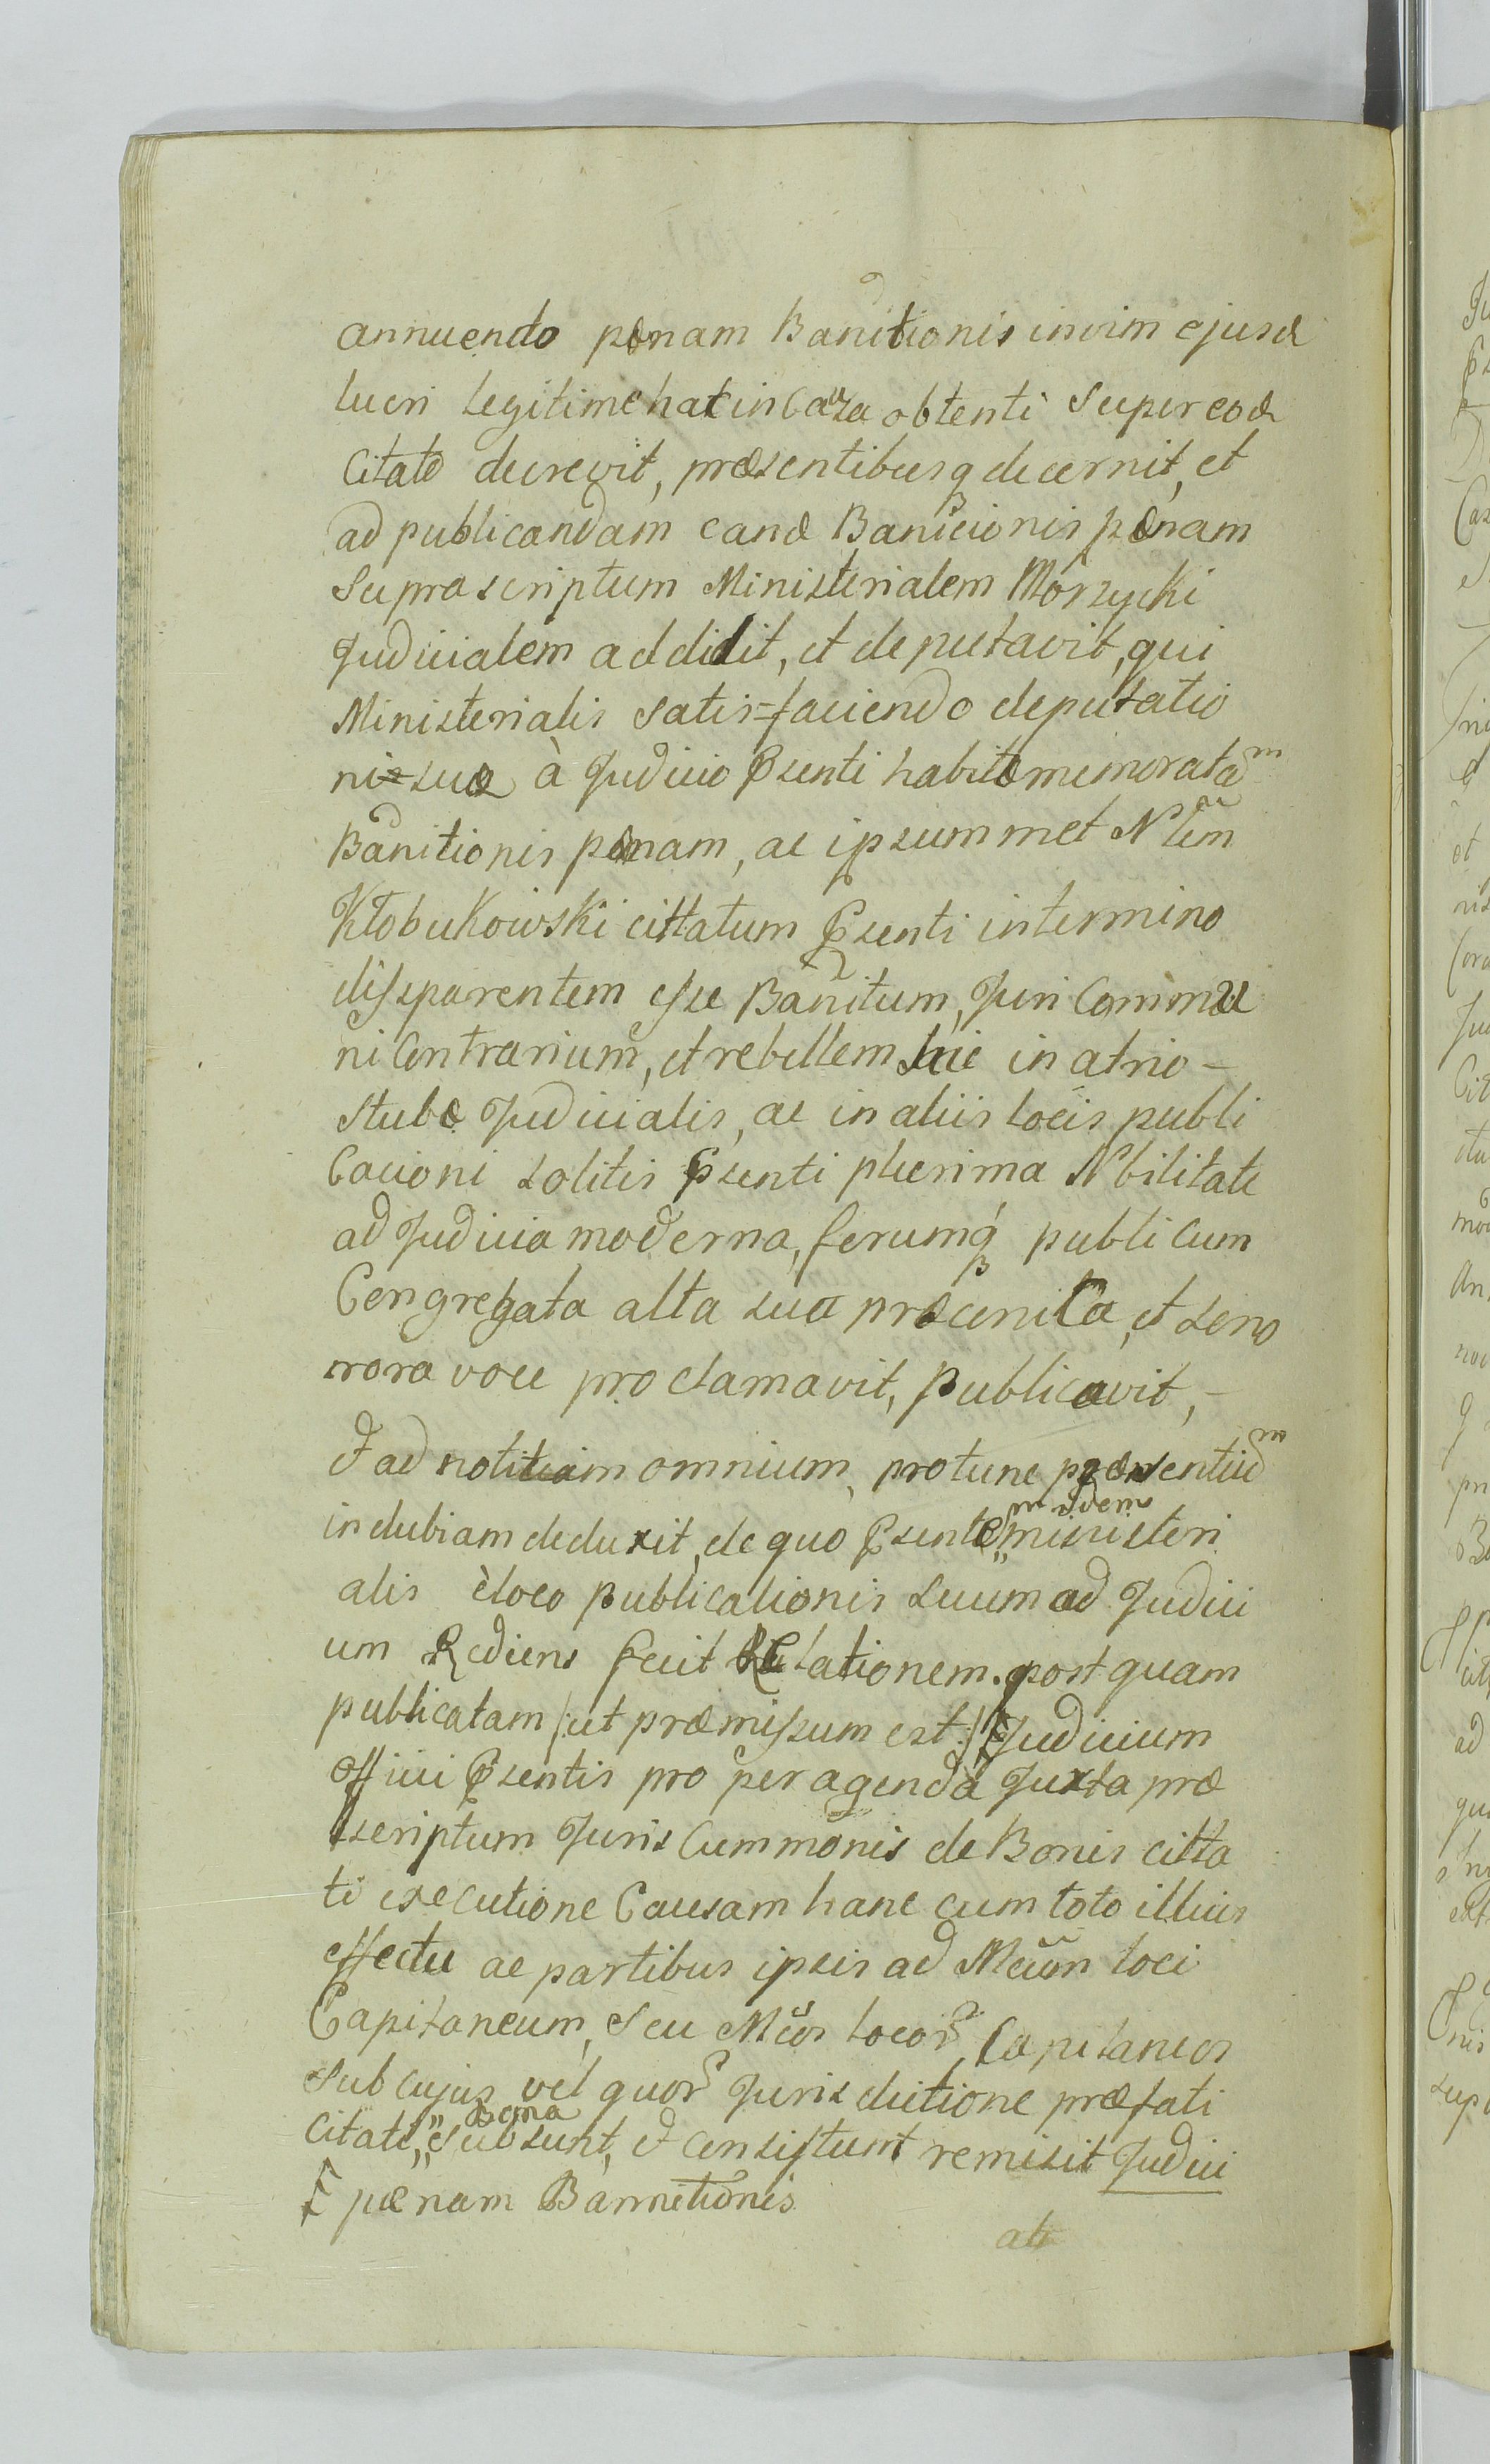 annuendo pænam Banitionis in vim ejusd
lucri legitime hac in Causa obtenti Super eod
Citato decrevit, præsentibusq decernit, et
ad publicandam eand Banicionis pænam
Suprascriptum Ministerialem Morzycki
Judicialem addidit, et deputavit, qui
Ministerialis satis=faciendo deputatio
ni=suæ à Judicio Psenti habitæ memoratam
Banitionis pænam, ac ipsummet Nlem
Kłobukowski cittatum Psenti in termino
disparentem esse Banitum, Juri Commu
ni Contrarium, et rebellem hic in atrio -
stubæ Judicialis, ac in aliis locis publi
Cacioni solitis Psenti plurima Nbilitate
ad Judicia moderna, forumq publicum
Congregata alta sua præconica, et sono
rora voce proclamavit, publicavit, -
Et ad notitiam omnium, protunc præsentium
indubiam deduxit, de quo Psentem idem ministeri
alis è loco publicationis suum ad Judici
um Rediens fecit Relationem. post quam
publicatam /: ut præmissum est :/ Judicium
Officii Psentis pro peragenda Juxta præ
scriptum Juris Cummonis de Bonis citta
ti executione Causam hanc cum toto illius
effectu ac partibus ipsis ad Mcum loci
Capitaneum, Seu Mcos locor Capitaneos
sub cujus vel quor Jurisdictione præfati
Citati „ Bona „ Subsunt, et consistunt remisit Judici
pænam Bannitionis